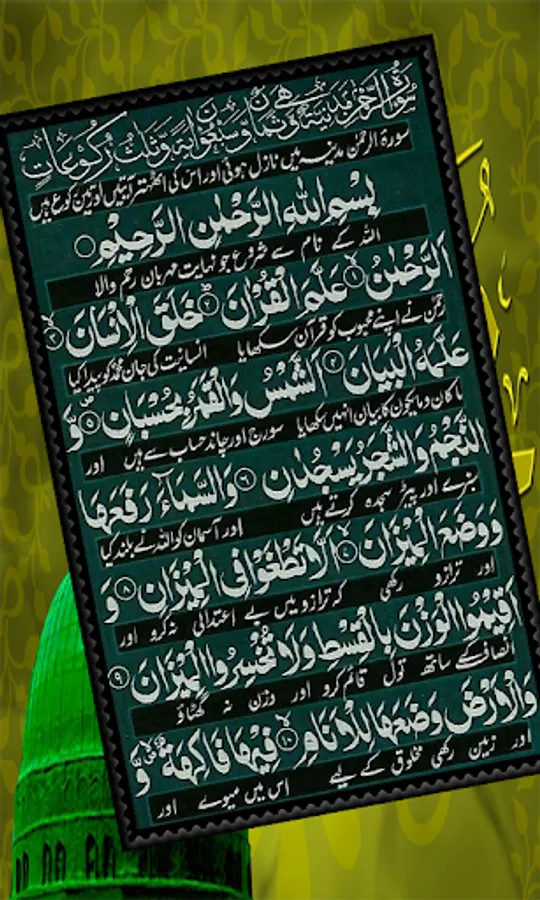 سُوْرَةُ الرَّحْمٰنِ مَدَنِيَّةٌ وَهِيَ ثَمَانٌ وَسَبْعُوْنَ اٰيَةً وَثَلٰثُ رُكُوْعَاتٍ
سورۃ الرحمٰن مدینہ میں نازل ہوئی اور اس کی اٹھتر آیتیں اور تین رکوع ہیں
بِسْمِ اللّٰهِ الرَّحْمٰنِ الرَّحِيْمِ
اللہ کے نام سے شروع جو نہایت مہربان رحم والا
اَلرَّحْمٰنُ ۙ﴿۱﴾ عَلَّمَ الْقُرْاٰنَ ؕ﴿۲﴾ خَلَقَ الْاِنْسَانَ ۙ﴿۳﴾
رحمٰن نے اپنے محبوب کو قرآن سکھایا انسانیت کی جان محمد کو پیدا کیا
عَلَّمَهُ الْبَيَانَ ﴿۴﴾ اَلشَّمْسُ وَالْقَمَرُ بِحُسْبَانٍ ﴿۵﴾ وَّ
ما کان و ما یکون کا بیان انہیں سکھایا سورج اور چاند حساب سے ہیں اور
النَّجْمُ وَالشَّجَرُ يَسْجُدٰنِ ﴿۶﴾ وَالسَّمَآءَ رَفَعَهَا
سبزے اور پیڑ سجدہ کرتے ہیں اور آسمان کو اللہ نے بلند کیا
وَوَضَعَ الْمِيْزَانَ ۙ﴿۷﴾ اَلَّا تَطْغَوْا فِى الْمِيْزَانِ ﴿۸﴾ وَ
اور ترازو رکھی کہ ترازو میں بے اعتدالی نہ کرو اور
اَقِيْمُوا الْوَزْنَ بِالْقِسْطِ وَلَا تُخْسِرُوا الْمِيْزَانَ ﴿۹﴾
انصاف کے ساتھ تول قائم کرو اور وزن نہ گھٹاؤ
وَالْاَرْضَ وَضَعَهَا لِلْاَنَامِ ۙ﴿۱۰﴾ فِيْهَا فَاكِهَةٌ وَّ
اور زمین رکھی مخلوق کے لیے اس میں میوے اور